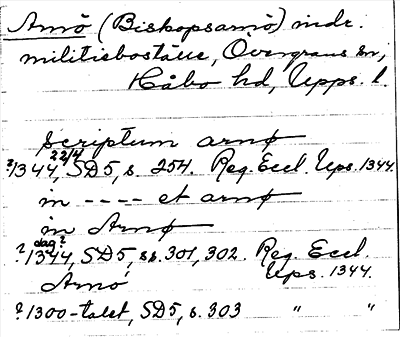 Arnö (Biskopsarnö) indr.
militieboställe, Övergrans sn,
Håbo hd, Upps. l.
scriptum arnø
?1344 22/4, SD5, s. 254. Reg. Eccl. Ups. 1344.
in ---- et arnø
in Arnø
?1344 dag?, SD5, ss. 301, 302. Reg. Eccl.
Ups. 1344.
Arnó
?1300-talet, SD5, s. 303 " "